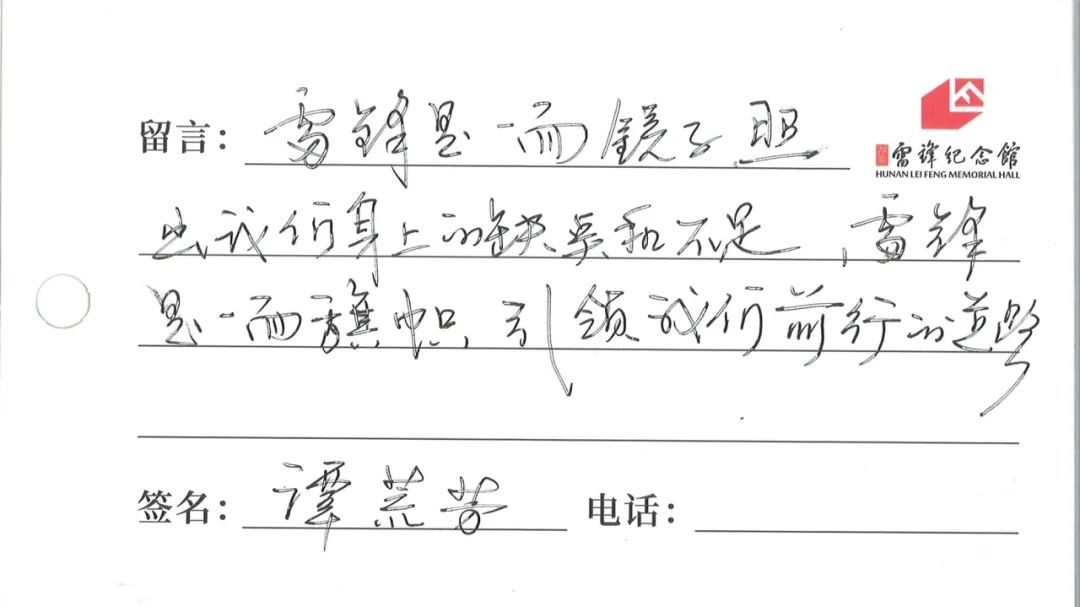 留言：雷锋是一面镜子照
雷锋纪念馆
HUNAN LEI FENG MEMORIAL HALL
出我们身上的缺点和不足，雷锋
是一面旗帜，引领我们前行的道路
签名：谭荒芳 电话：